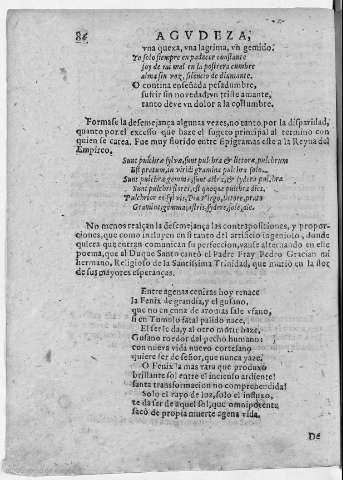 86 AGVDEZA,
vna quexa, vna lagrima, vn gemido.
Yo solo siempre en padecer constante
soy de mi mal en la postrera cumbre
alma sin voz, silencio de diamante.
O contina enseñada pesadumbre,
sufrir sin nouedad, vn triste amante,
tanto deve vn dolor a la costumbre.
Formase la desemejança algunas vezes, no tanto por la disparidad,
quanto por el excesso que haze el sugeto principal al termino con
quien se carea. Fue muy florido este epigrama este a la Reyna del
Empireo.
Sunt pulchræ sylvæ, sunt pulchra & littora, pulchrum
Est pratum, in viridi gramine pulchra
Sunt pulchræ gemmæ, sunt astra, & sydera pulchra
Sunt pulchri flores, est quoque pulchra dies.
Pulchrior es sylvis, Dia Virgo, littore, prato
Gramine, gemma, astris, sydere, sole, die.
No menos realçan la desemejança las contraposiciones, y propor-
ciones, que como incluyen en si tanto del artificio ingenioso, donde
quiera que entran comunican su perfeccion, vanse alternando en este
poema, que al Duque Santo cantò el Padre Fray Pedro Gracian mi
hermano, Religioso de la Santissima Trinidad, que murió en la flor
de sus mayores esperanças.
Entre agenas cenizas hoy renace
la Fenix de grandia, y el gusano,
que no en cuna de aromas sale vfano,
si en Tumolo fatal palido nace,
El ser le da, y al otro morir haze,
Gusano roedor del pecho humano:
con nueva vida nuevo cortesano
quiere ser de señor, que nunca yaze.
O Fenix la mas rara que produxo
brillante sol entre el incienso ardiente!
santa transformacion no comprehendida!
Solo el rayo de luz, solo el influxo,
te da ser de aquel sol, que omnipotente
sacò de propia muerte agena vida.
De